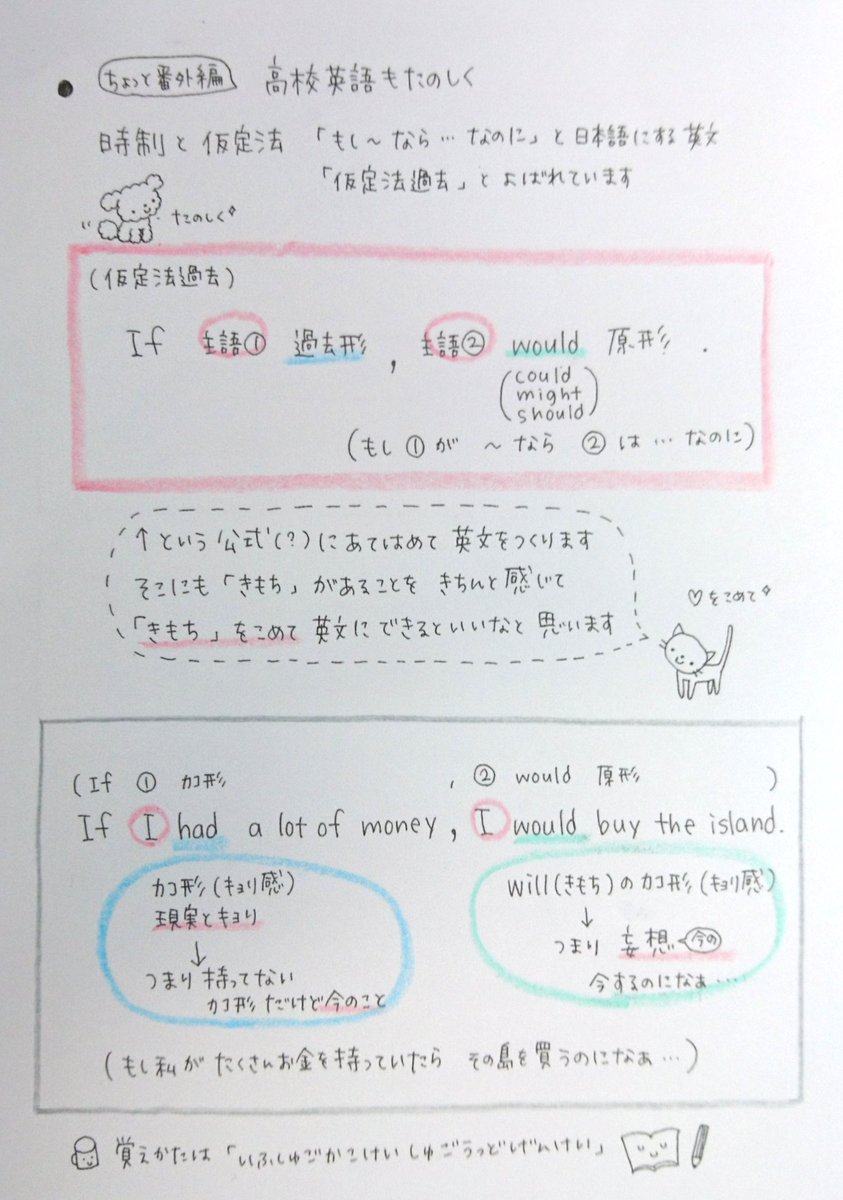 ● ちょっと番外編 高校英語もたのしく
時制と仮定法 「もし～なら…なのに」と日本語にする英文
「仮定法過去」とよばれています
たのしく
(仮定法過去)
If 主語① 過去形, 主語② would 原形.
(could
might
should)
(もし①が ～なら ②は…なのに)
↑という公式(?)にあてはめて英文をつくります
そこにも「きもち」があることをきちんと感じて
「きもち」をこめて英文にできるといいなと思います
♡をこめて
(If ① カコ形 , ② would 原形 )
If I had a lot of money, I would buy the island.
カコ形(キョリ感)
現実とキョリ
↓
つまり持ってない
カコ形だけど今のこと
will(きもち)のカコ形(キョリ感)
↓
つまり 妄想 今の
今するのになぁ…
(もし私がたくさんお金を持っていたら その島を買うのになぁ…)
覚えかたは「いふしゅごかこけいしゅごうっどげんけい」